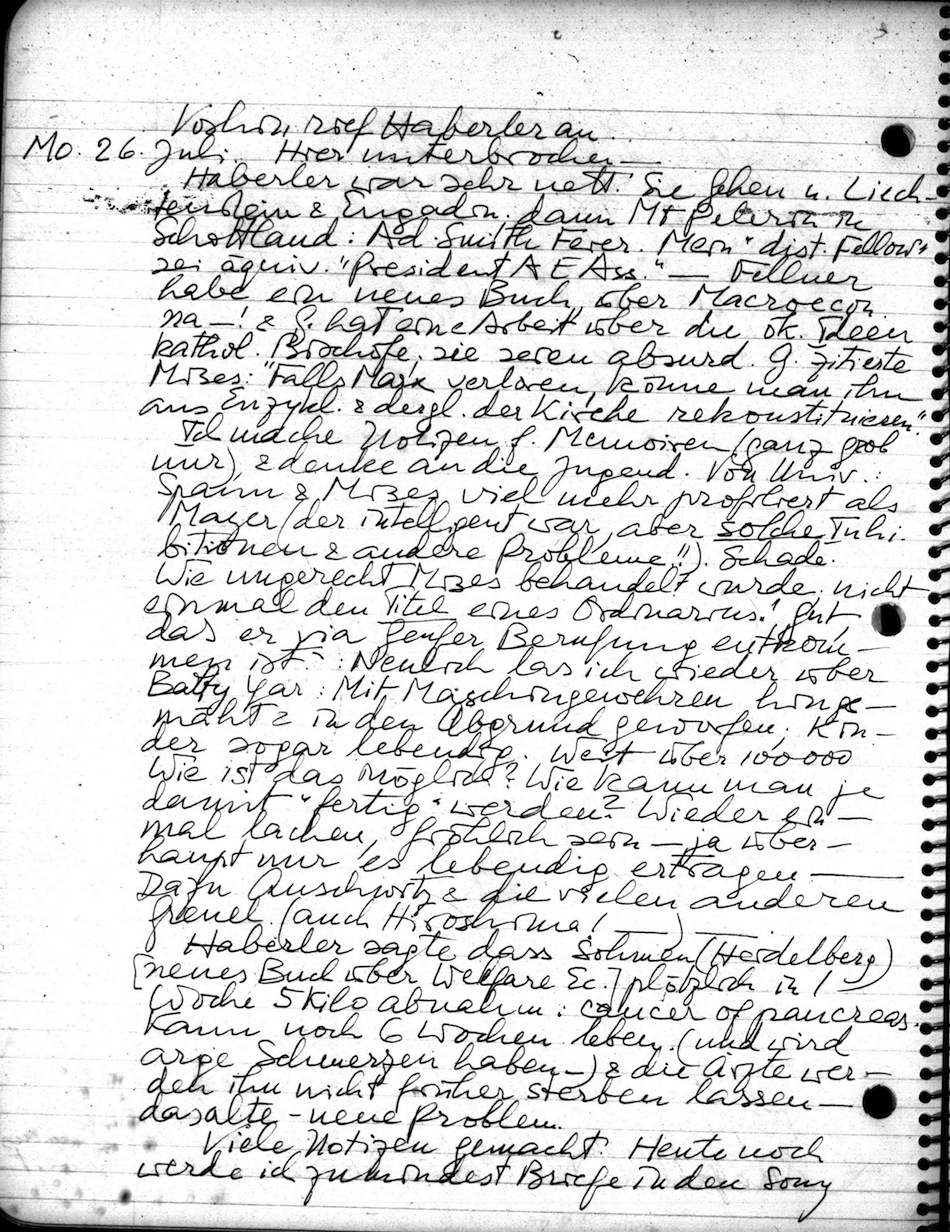 Vorhin rief Haberler an.
Mo. 26. Juli. Hier unterbrochen —
Haberler war sehr nett. Sie gehen n. Liech-
tenstein & Engadin. dann Mt Pelerin in
Schottland: Ad. Smith Feier. Mein "dist. Fellow"
sei äquiv. "President A E Ass." — Fellner
habe ein neues Buch über Macroecon.
na —! & G. hat eine Arbeit über die ök. Ideen
kathol. Bischöfe; sie seien absurd. G. zitierte
Mises: "Falls Marx verloren, könne man ihn
aus Enzykl. & dergl. der Kirche rekonstituieren."
Ich mache Notizen f. Memoiren (ganz grob
nur) & denke an die Jugend. Von Univ.:
Spann & Mises viel mehr profitiert als
Mayer (der intelligent war, aber solche Inhi-
bitionen & andere Probleme!!). Schade.
Wie ungerecht Mises behandelt wurde, nicht
einmal den Titel eines Ordinarius! Gut,
das er via Genfer Berufung entkom-
men ist —: Neulich las ich wieder über
Baby Yar: Mit Maschingewehren hinge-
mäht & in den Abgrund geworfen, Kin-
der sogar lebendig. Weit über 100 000
Wie ist das möglich? Wie kann man je
damit "fertig" werden? Wieder ein-
mal lachen, fröhlich sein — ja über-
haupt nur es lebendig ertragen ——
Dazu Auschwitz & die vielen anderen
Greuel. (auch Hiroshima! —) —
Haberler sagte dass Sohmen (Heidelberg)
[neues Buch über Welfare Ec.] plötzlich in 1
Woche 5 Kilo abnahm: cancer of pancreas.
Kann noch 6 Wochen leben (und wird
arge Schmerzen haben —) & die Ärzte wer-
den ihn nicht früher sterben lassen —
das alte - neue Problem.
Viele Notizen gemacht. Heute noch
werde ich zumindest Briefe in den Sony